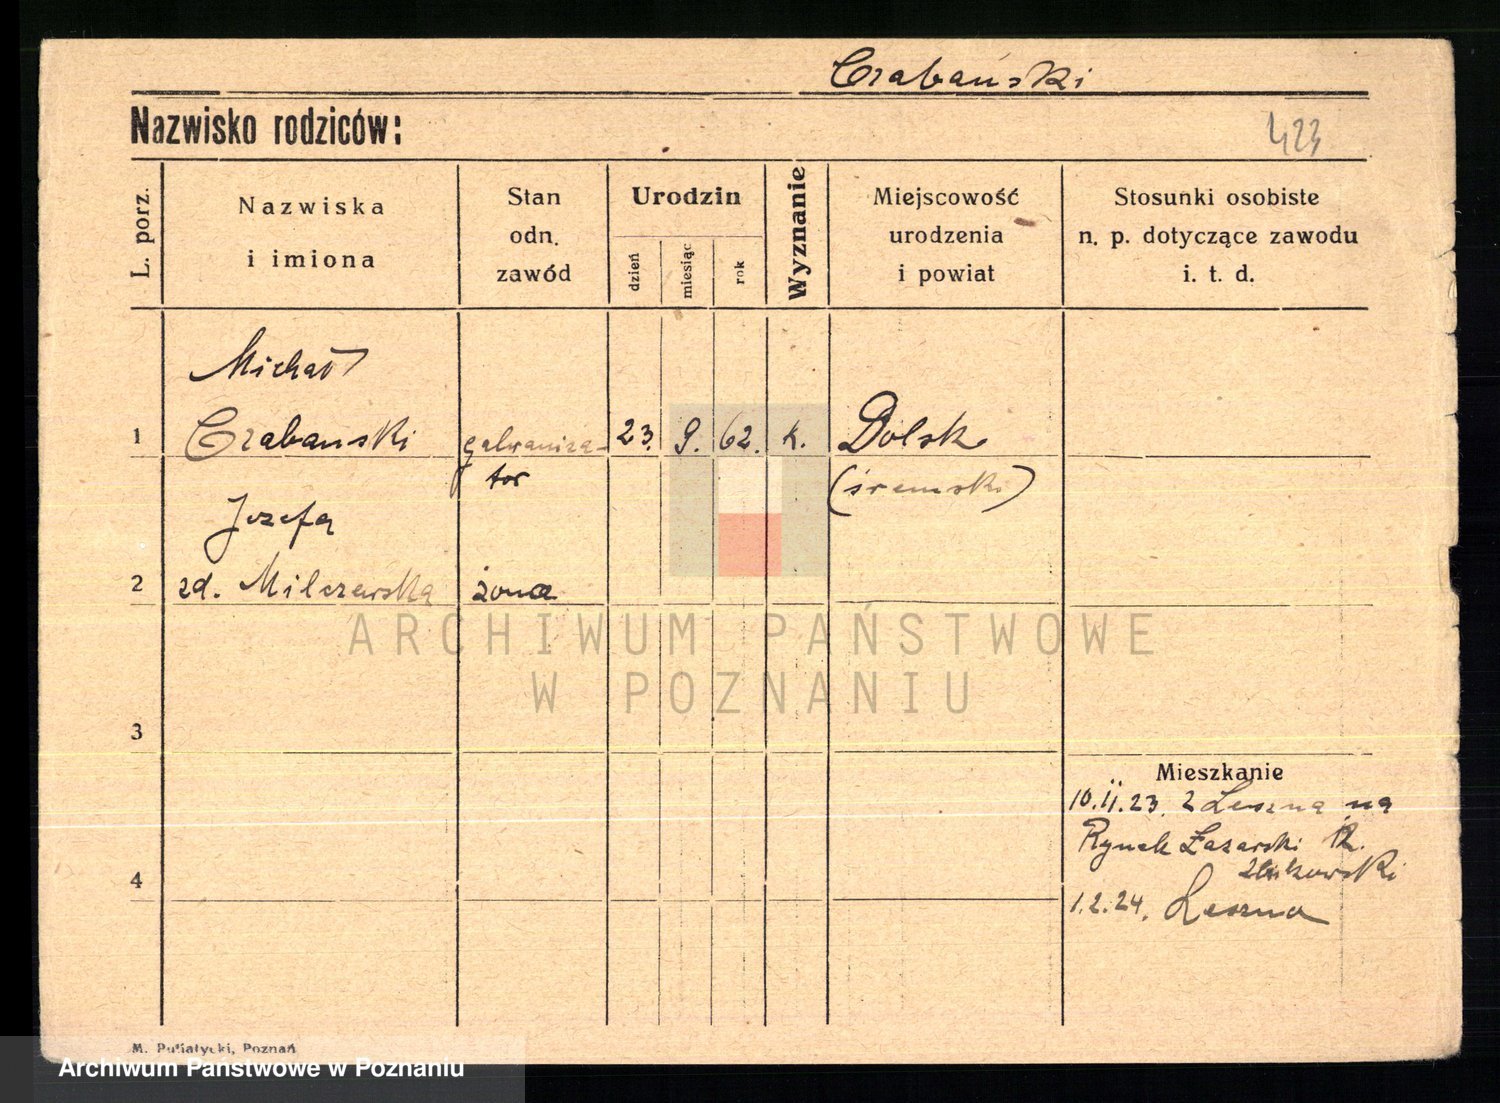 Czabański
Nazwisko rodziców:
423
L. porz.
Nazwiska
i imiona
Stan
odn.
zawód
Urodzin
dzień
miesiąc
rok
Wyznanie
Miejscowość
urodzenia
i powiat
Stosunki osobiste
n. p. dotyczące zawodu
i. t. d.
Michał
1 Czabanski galwaniza- 23. 9. 62. k. Dolsk
tor (śremski)
Jozefa
2 zd. Milczewska żona
ARCHIWUM PAŃSTWOWE
W POZNANIU
3
Mieszkanie
10.II.23. z Leszna na
Rynek Łazarski
4
1.2.24. Leszno
M. Putiatycki, Poznań
Archiwum Państwowe w Poznaniu